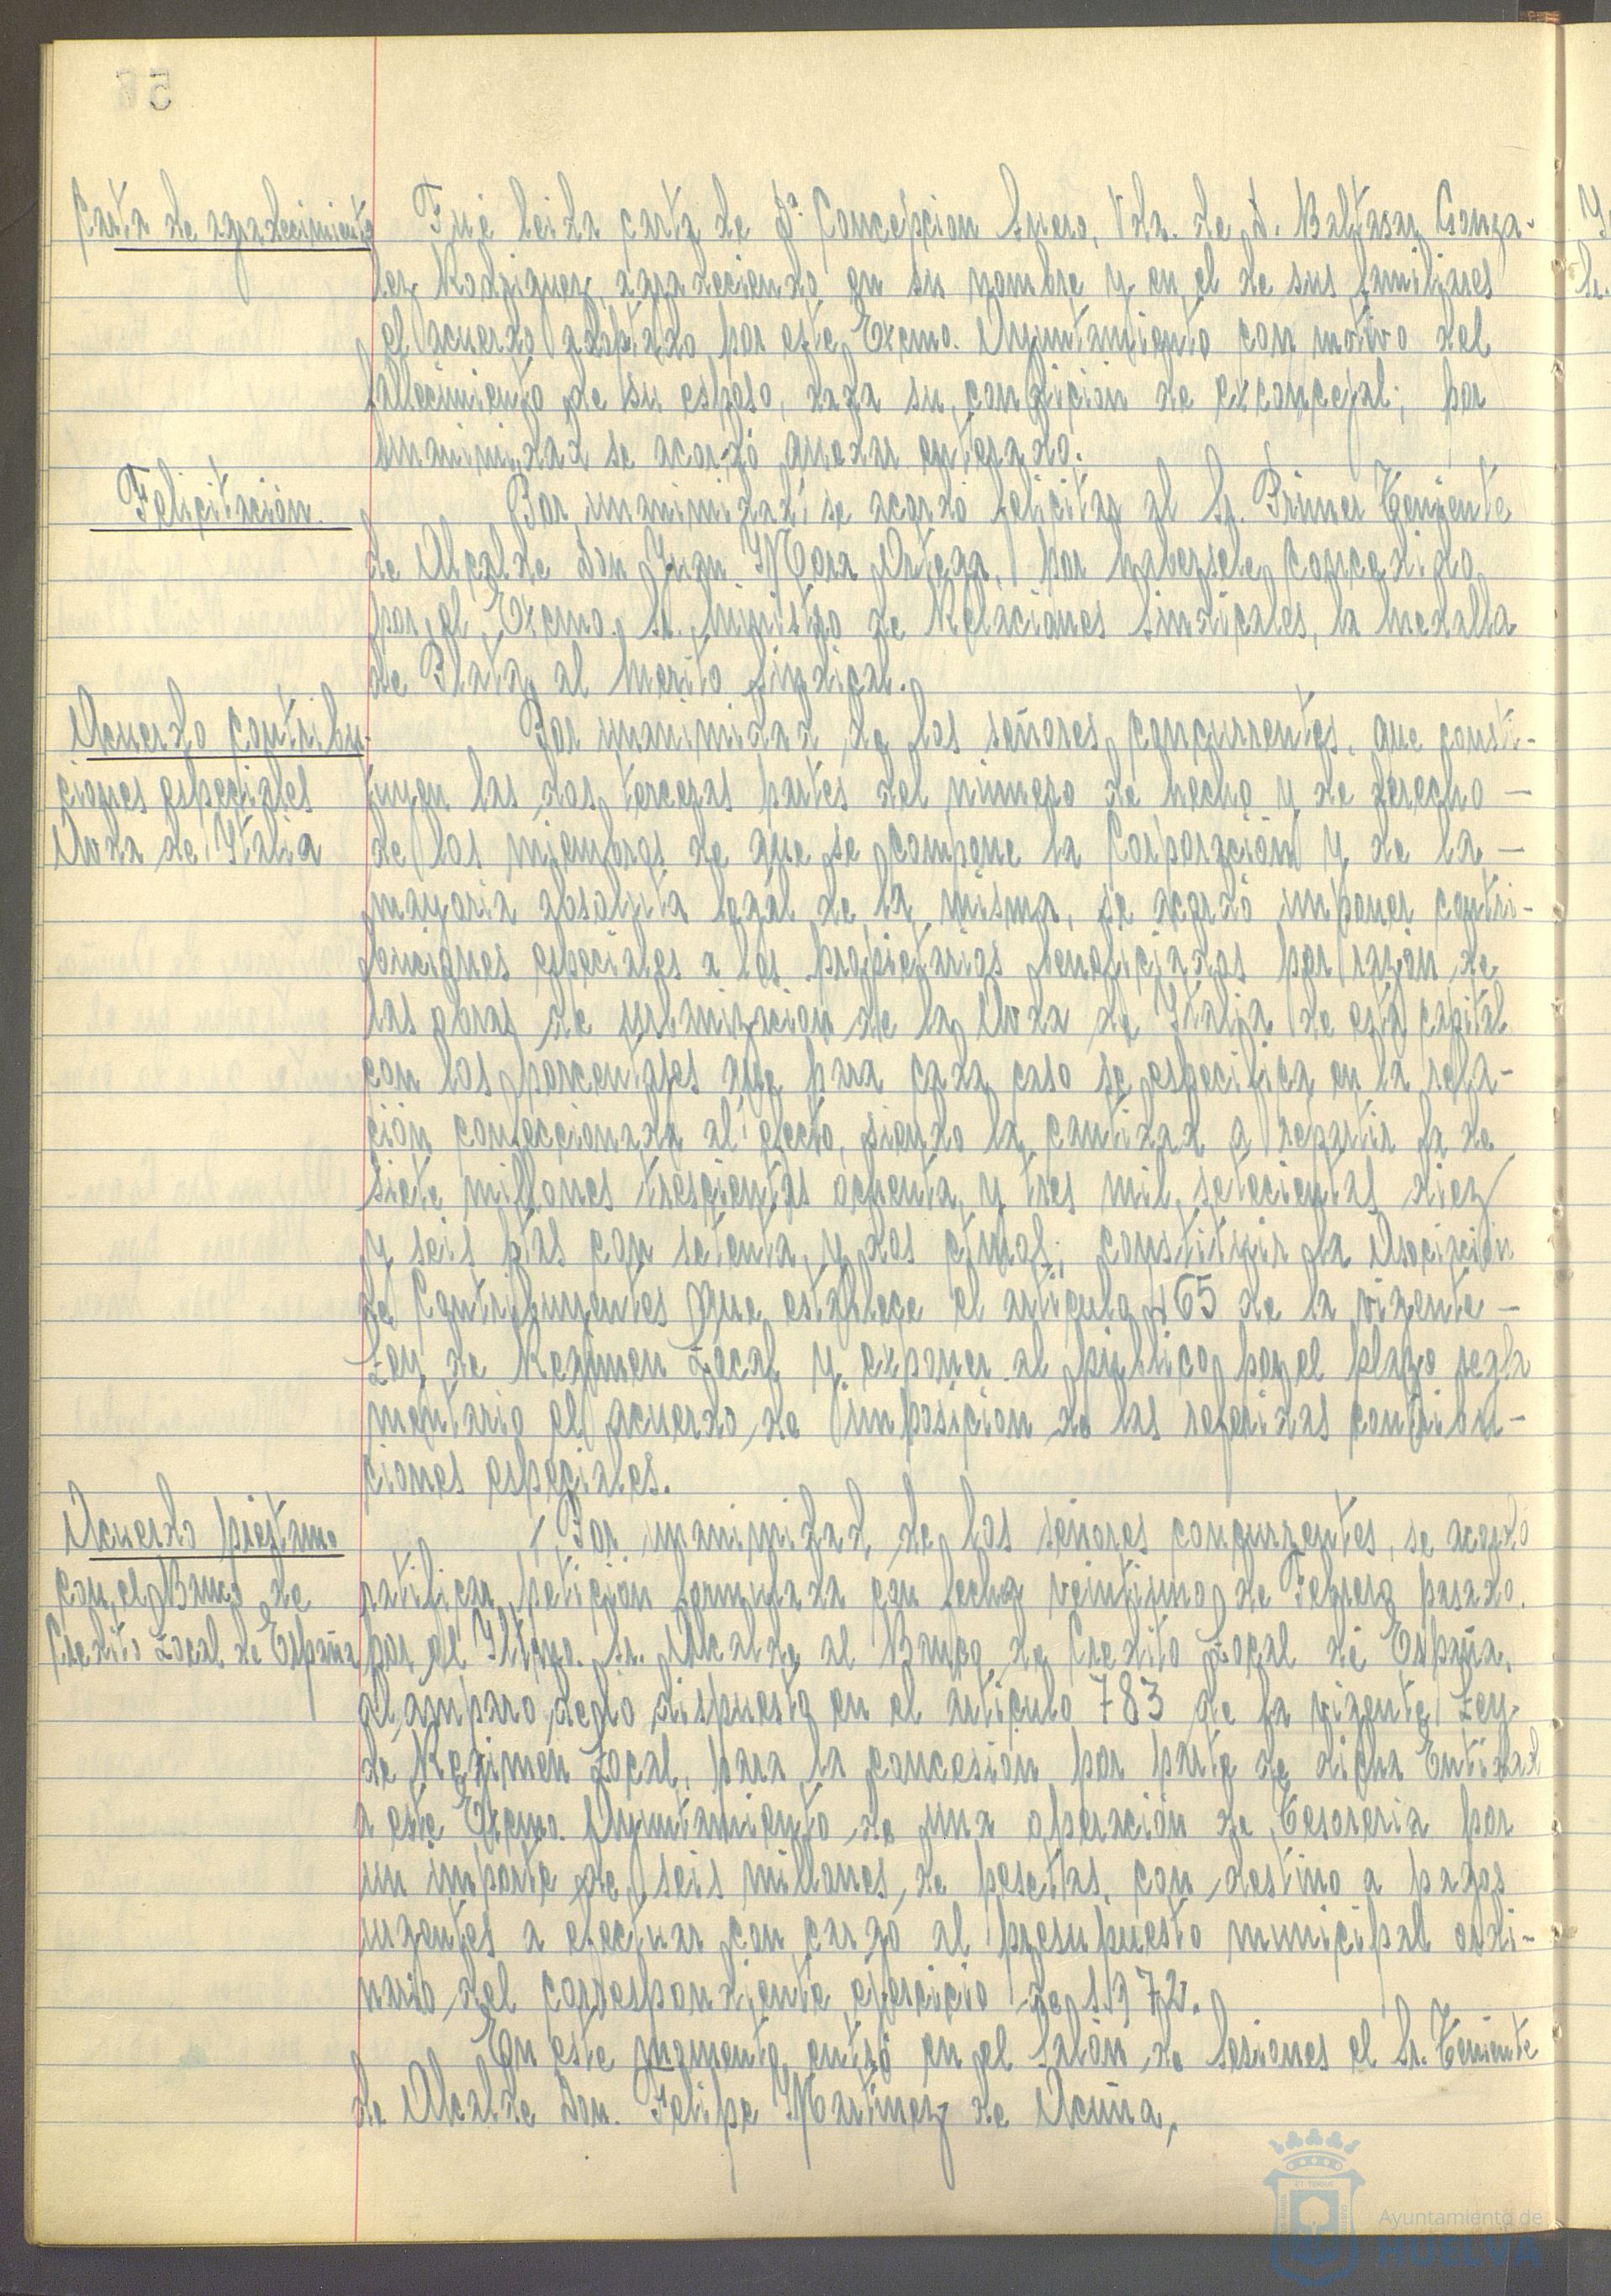 Carta de agradecimiento
Fué leida carta de Dª. Concepcion Suero, Vda. de D. Baltasar Gonza-
lez Rodriguez, agradeciendo en su nombre y en el de sus familiares
el acuerdo adoptado por este Excmo. Ayuntamiento con motivo del
fallecimiento de su esposo, dada su condición de exconcejal; por
unanimidad se acordó quedar enterado.
Felicitación.
Por unanimidad se acordó felicitar al Sr. Primer Teniente
de Alcalde Don Juan Mora Ortega, por habersele concedido
por el Excmo. Sr. Ministro de Relaciones Sindicales, la Medalla
de Plata al Merito Sindical.
Acuerdo contribu-
ciones especiales
Avda de Italia
Por unanimidad de los señores concurrentes, que consti-
tuyen las dos terceras partes del número de hecho y de derecho -
de los miembros de que se compone la Corporación y de la -
mayoria absoluta legal de la misma, se acordó imponer contri-
buciones especiales a los propietarios beneficiados por razón de
las obras de urbanización de la Avda de Italia de esta capital
con los porcentajes que para cada caso se especifica en la rela-
ción confeccionada al efecto, siendo la cantidad a repartir la de
siete millones trescientas ochenta y tres mil setecientas diez
y seis ptas con setenta y dos ctmos; constituir la Asociación
de Contribuyentes que establece el articulo 465 de la vigente -
Ley de Regimen Local y exponer al público por el plazo regla
mentario el acuerdo de imposicion de las referidas contribu-
ciones especiales.
Acuerdo préstamo
con el Banco de
Credito Local de España
Por unanimidad de los señores concurrentes, se acordó
ratificar petición formulada con fecha veintiuno de Febrero pasado.
por el Iltmo. Sr. Alcalde al Banco de Credito Local de España,
al amparo de lo dispuesto en el articulo 783 de la vigente Ley
de Regimen Local, para la concesión por parte de dicha Entidad
a este Excmo. Ayuntamiento de una operación de Tesoreria por
un importe de seis millones de pesetas, con destino a pagos
urgentes a efectuar con cargo al presupuesto municipal ordi-
nario del correspondiente ejercicio de 1.972.
En este momento entró en el Salón de Sesiones el Sr. Teniente
de Alcalde Don. Felipe Martinez de Acuña,
Ayuntamiento de
HUELVA